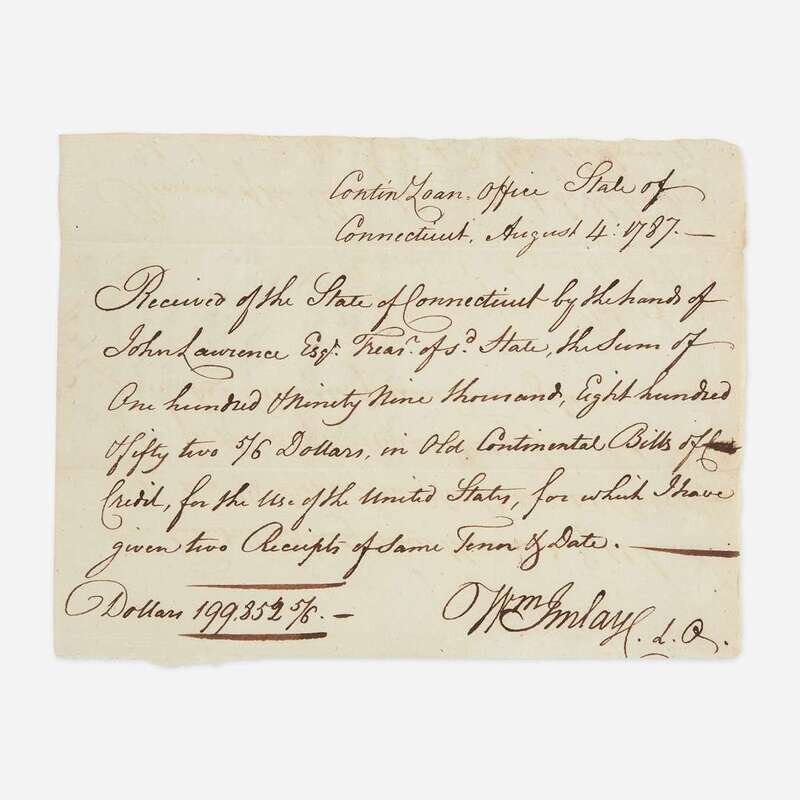 Contin.l Loan. Office State of
Connecticut, August 4: 1787.—
Received of the State of Connecticut by the hands of
John Lawrence Esqr. Treasr. of sd. State, the Sum of
One hundred & Ninety Nine thousand, Eight hundred
& fifty two 5/6 Dollars, in Old Continental Bills of
Credit, for the Use of the United States, for which I have
given two Receipts of same Tenor & Date. —
Dollars 199.852 5/6. —
Wm Imlay C. L. O.